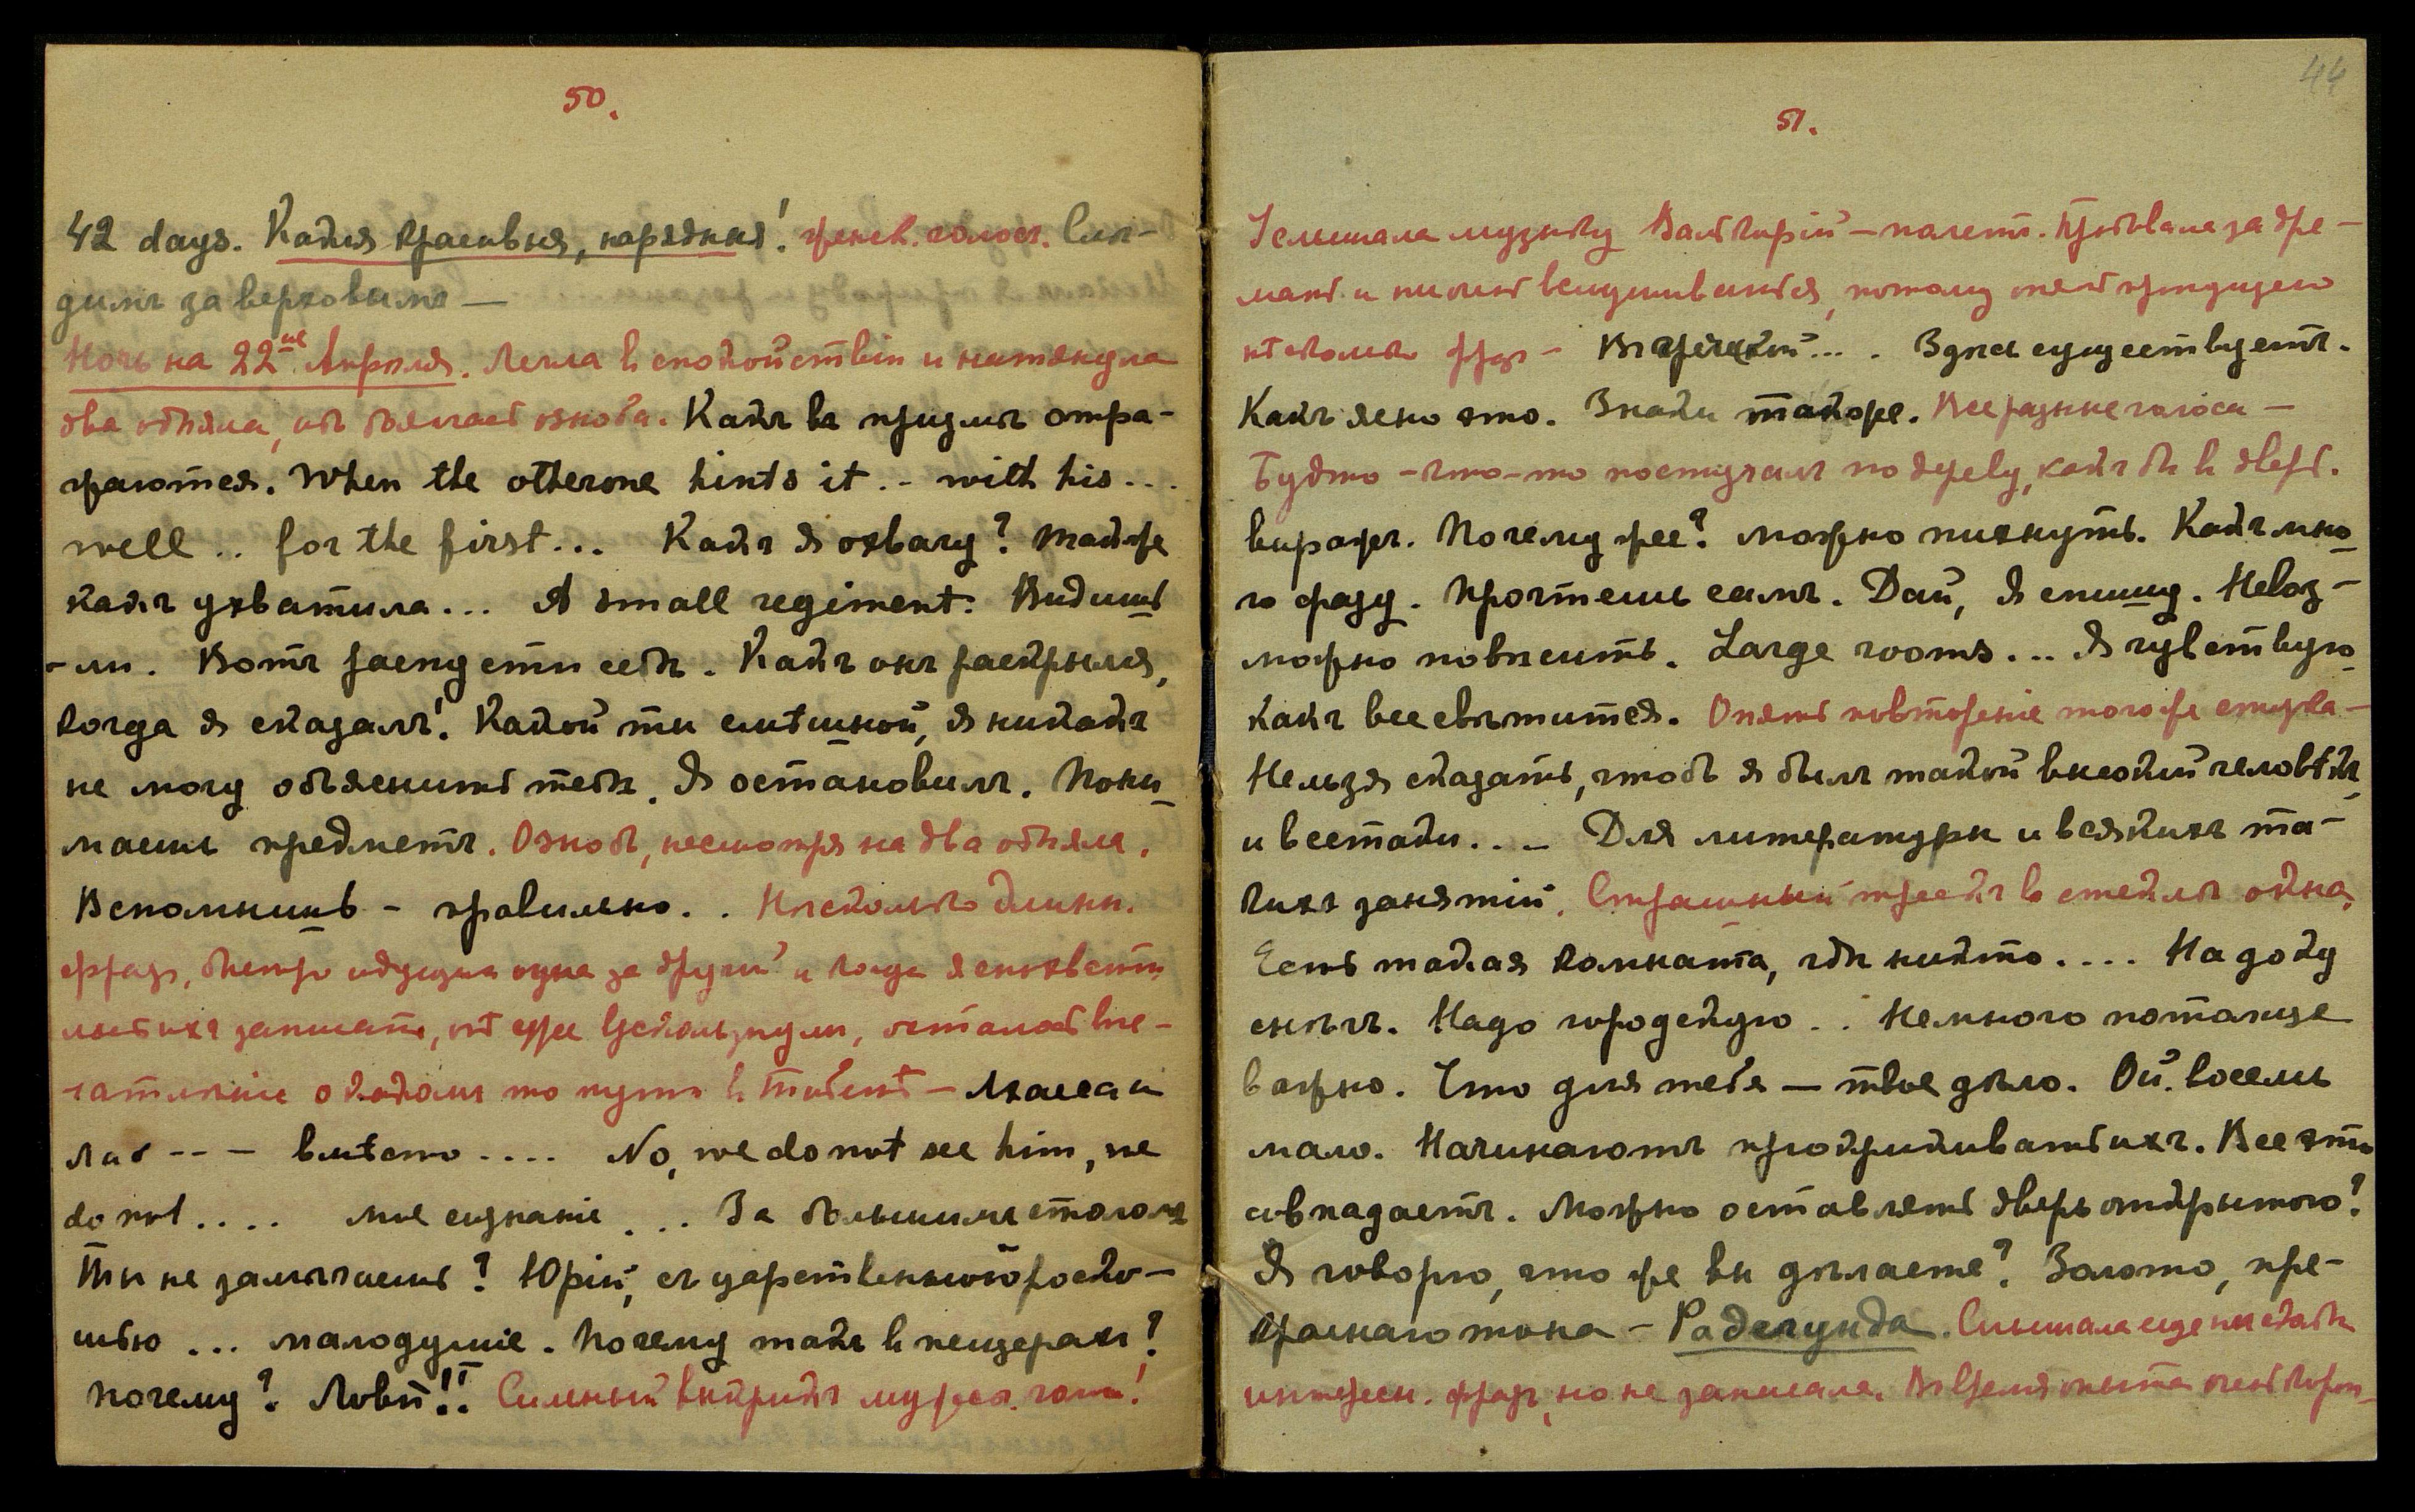 50.
42 days. Какая красивая, нарядная! женск. голос. Сли-
димъ за верховьимъ —
Ночь на 22ое Апрѣля. Легла в спокойствіи и натянула
два одѣяла, озноба. Какъ въ призмѣ отра-
жаются. When the otherone hints it. - with his...
well .. for the first... Какъ я охвачу? Также
какъ ухватила... A small regiment. Видишь
-ли. Вотъ себѣ. Какъ онъ раскрылся,
когда я сказалъ! Какой ты смѣшной, я никакъ
не могу объяснить тебѣ. Я остановилъ. Пони-
маешь предметъ. Ознобъ, несмотря на два одѣяла.
Вспомнишь - правильно.. Нѣсколько длинн.
фразъ, быстро идущихъ одна за другой и когда я спохвати-
лась ихъ записать, онѣ уже ускользнули, осталось впе-
чатлѣніе о какомъ то пути в Тибетѣ — Лхаса и
Лаб --- вмѣсто .... No, we do not see him, we
do not .... мое сознаніе ... За большимъ столомъ
Ты не замѣчаешь? Юрій, съ царственной роско-
шью ... малодушіе. Почему такъ в пещерахъ?
почему? Лови!!. Сильный выкрикъ мужск. голоса!
44
51.
Услышала музыку Валькирій — полетъ. Пробовала за дре-
мать и вслушиваться, потому
нѣсколько фразъ - Въ греческой... . Здѣсь существуетъ.
Какъ ясно это. Знаки также. Все разные голоса —
Будто - что-то постучалъ по дереву, какъ бы в дверь.
виражъ. Почему же? можно пихнуть. Какъ мно-
го фразу. Прочтешь самъ. Дай, я спишу. Невоз-
можно повѣсить. Large rooms... Я чувствую,
какъ все свѣтится. Опять повтореніе того же стука —
Нельзя сказать, чтобъ я былъ такой высокій человѣкъ,
и всетаки... - Для литературы и всякихъ та-
кихъ занятій. Страшный трескъ в стеклѣ окна.
Есть такая комната, гдѣ никто.... На
снѣгъ. Надо городскую .. Немного потолще
важно. Что для тебя — твое дѣло. Ой. восемь
мало. Начинаютъ прокрикивать ихъ. Все это
совпадаетъ. Можно оставлять дверь открытою?
Я говорю, что же вы дѣлаете? Золото, пре-
краснаго тона — Радегунда. Слышала еще
интересн. фразъ, но не записала. Въ время опыта